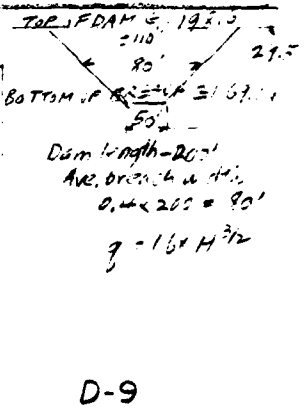 TOP OF DAM = 193.0
= 110'
80'
29.5
BOTTOM OF
50'
Dam length = 200'
Ave. breach width
0.4 x 200 = 80'
q = 16 x H 3/2
D-9